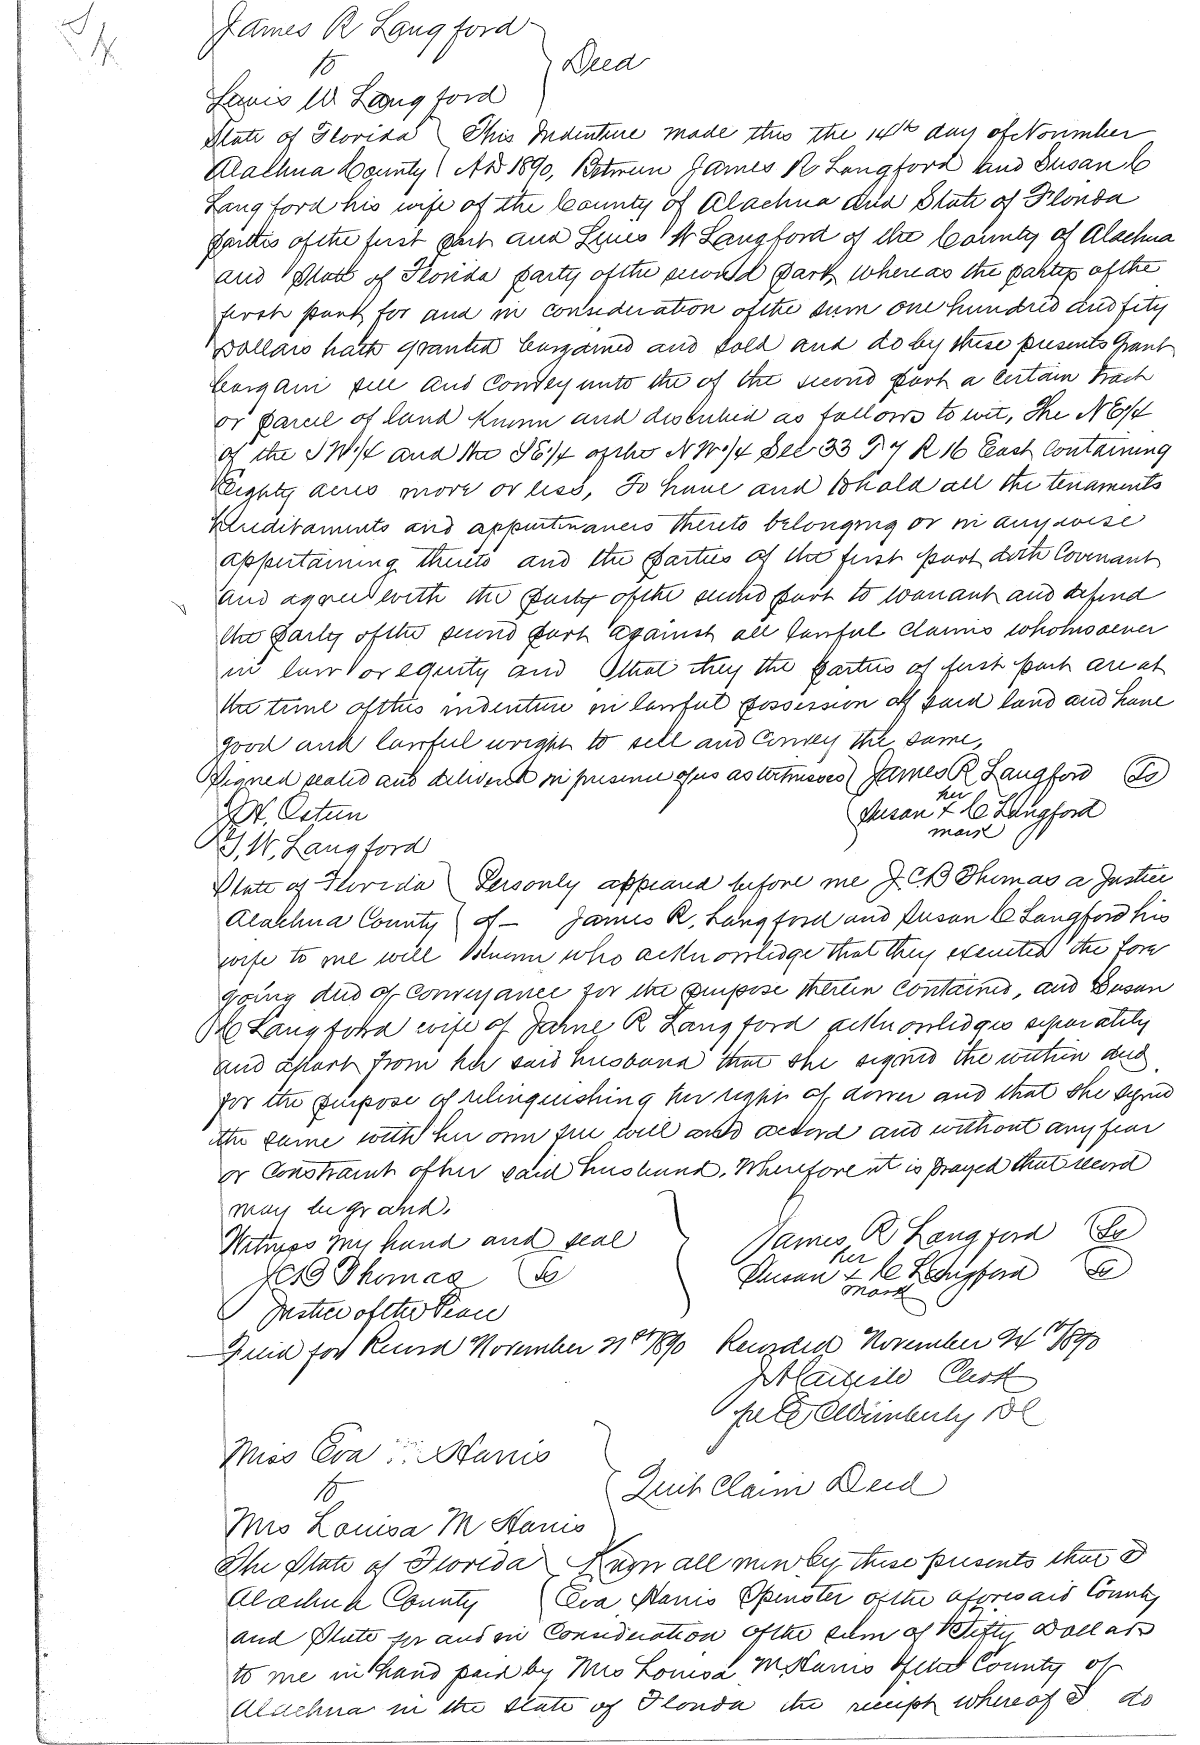 James R Langford
to
Deed
Lewis W Langford
State of Florida } This Indenture made this the 14th day of November
Alachua County } AD 1890, Between James R Langford and Susan C
Langford his wife of the County of Alachua and State of Florida
parties of the first part and Lewis W Langford of the County of Alachua
and State of Florida party of the second part, whereas the parties of the
first part for and in consideration of the sum one hundred and fity
Dollars hath granted bargained and sold and do by these presents Grant
bargain sell and Convey unto the of the second part a Certain tract
or parcel of land known and described as follows to wit, The NE1/4
of the SW1/4 and the SE1/4 of the NW1/4 Sec 33 T7 R 16 East Containing
Eighty acres more or less, To have and to hold all the tenaments
hereditaments and appurtinances thereto belonging or in any wise
appertaining thereto and the parties of the first part doth Covenant
and agree with the party of the second part to warrant and defend
the party of the second part against all lawful Claims whomsoever
in law or equity and that they the parties of first part are at
the time of this indenture in lawful possession of said land and have
good and lawful wright to sell and Convey the same,
Signed sealed and delivered in presence of us as witnesses } James R Langford LS
her
Osteen Susan x C Langford
mark
T. W. Langford
State of Florida } Personly appeard before me J.C.B Thomas a Justice
Alachua County } of - James R. Langford and Susan C Langford his
wife to me well known who acknowledge that they executed the fore
going deed of Conveyance for the purpose therein Contained, and Susan
C Langford wife of Jame R Langford acknowledges separately
and apart from her said husband that she signed the within deed
for the purpose of relinquishing her right of dower and that she signed
the same with her own free will and accord and without any fear
or Constraint of her said husband. Wherefore it is prayed that record
may be grand.
Witness my hand and seal James R Langford LS
her
JCB Thomas LS Susan x C Langford LS
mark
Justice of the Peace
Filed for Record November 21st 1890 Recorded November 24th 1890
Clerk
Wimberly DC
Miss Eva Harris
to
Quit Claim Deed
Mrs Louisa M Harris
The State of Florida } Know all men by these presents that I
Alachua County } Eva Harris Spenster of the aforesaid County
and State for and in Consideration of the sum of Fifty Dollars
to me in hand paid by Mrs Louisa M. Harris of the County of
Alachua in the state of Florida the receipt whereof I do